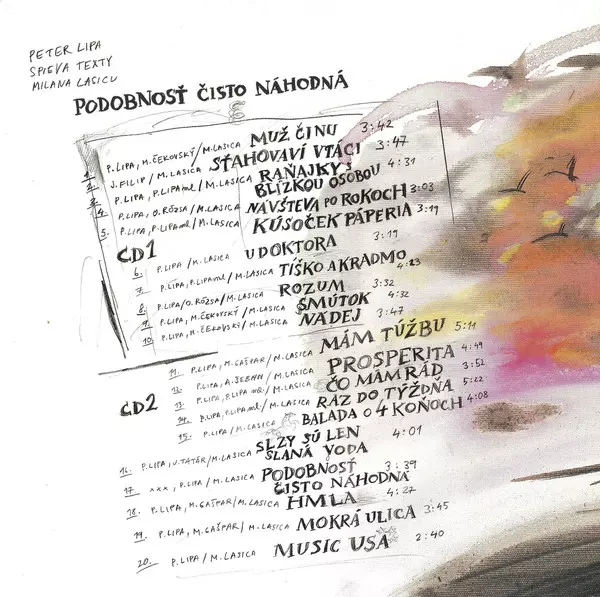 PETER LIPA
SPIEVA TEXTY
MILANA LASICU
PODOBNOSŤ ČISTO NÁHODNÁ
1. P. LIPA, M. ČEKOVSKÝ / M. LASICA MUŽ ČINU 3:42
2. J. FILIP / M. LASICA SŤAHOVAVÍ VTÁCI 3:47
3. P. LIPA, P. LIPA ml / M. LASICA RAŇAJKY S
BLÍZKOU OSOBOU 4:31
4. P. LIPA, O. RÓZSA / M. LASICA NÁVŠTEVA PO ROKOCH 3:03
5. P. LIPA, P. LIPA ml / M. LASICA KÚSOČEK PÁPERIA 3:19
CD1
6. P. LIPA / M. LASICA U DOKTORA 3:19
7. P. LIPA, P. LIPA ml / M. LASICA TÍŠKO A KRADMO 4:23
8. P. LIPA / O. RÓZSA / M. LASICA ROZUM 3:32
9. P. LIPA, M. ČEKOVSKÝ / M. LASICA SMÚTOK 4:32
10. P. LIPA, M. ČEKOVSKÝ / M. LASICA NÁDEJ 3:47
CD2
11. P. LIPA, M. GAŠPAR / M. LASICA MÁM TÚŽBU 5:11
12. P. LIPA, A. ŠEBAN / M. LASICA PROSPERITA 4:49
13. P. LIPA, P. LIPA ml. / M. LASICA ČO MÁM RÁD 3:52
14. P. LIPA, P. LIPA ml / M. LASICA RAZ DO TÝŽDŇA 5:22
15. P. LIPA / M. LASICA BALADA O 4 KOŇOCH 4:08
16. P. LIPA, J. TATÁR / M. LASICA SLZY SÚ LEN
SLANÁ VODA 4:01
17. xxx, P. LIPA / M. LASICA PODOBNOSŤ
ČISTO NÁHODNÁ 3:39
18. P. LIPA, M. GAŠPAR / M. LASICA HMLA 4:27
19. P. LIPA, M. GAŠPAR / M. LASICA MOKRÁ ULICA 3:45
20. P. LIPA / M. LASICA MUSIC USA 2:40